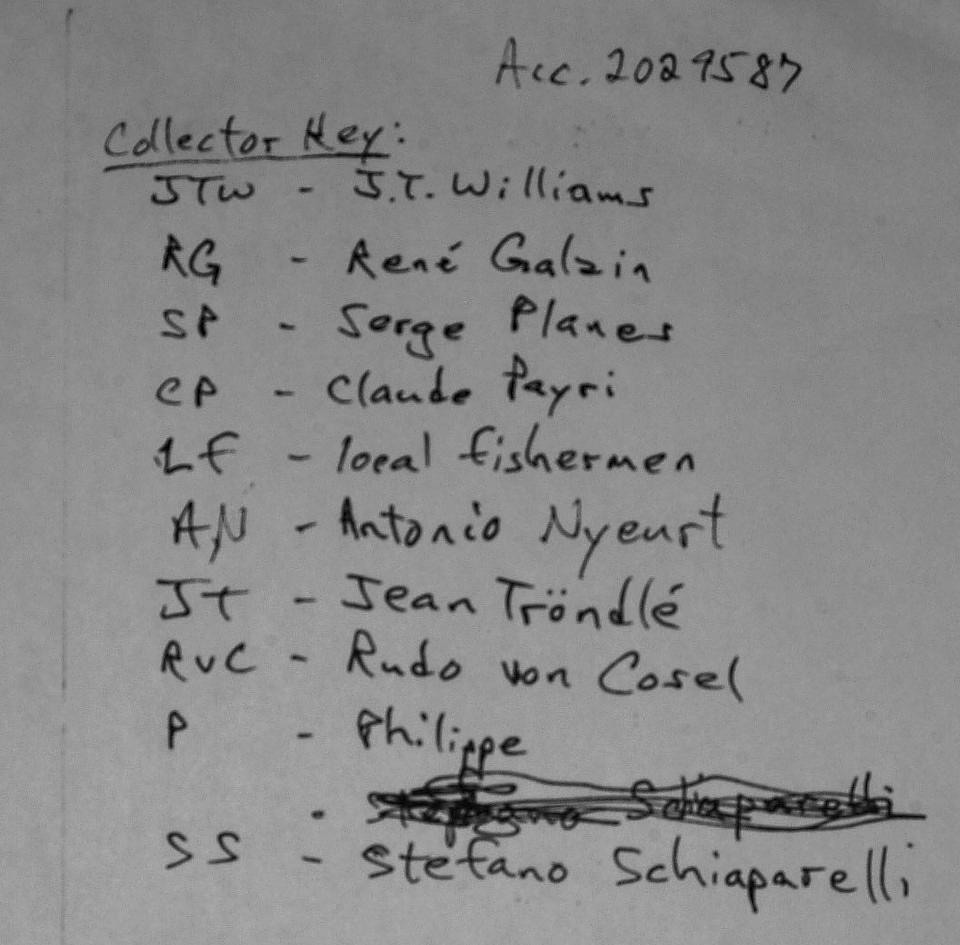 Acc. 2029587
Collector Key:
JTW - J.T. Williams
RG - René Galzin
SP - Serge Planes
CP - Claude Payri
LF - local fishermen
AN - Antonio Nyeurt
JT - Jean Tröndlé
RvC - Rudo von Cosel
P - Philippe
Schiaparelli
SS - Stefano Schiaparelli